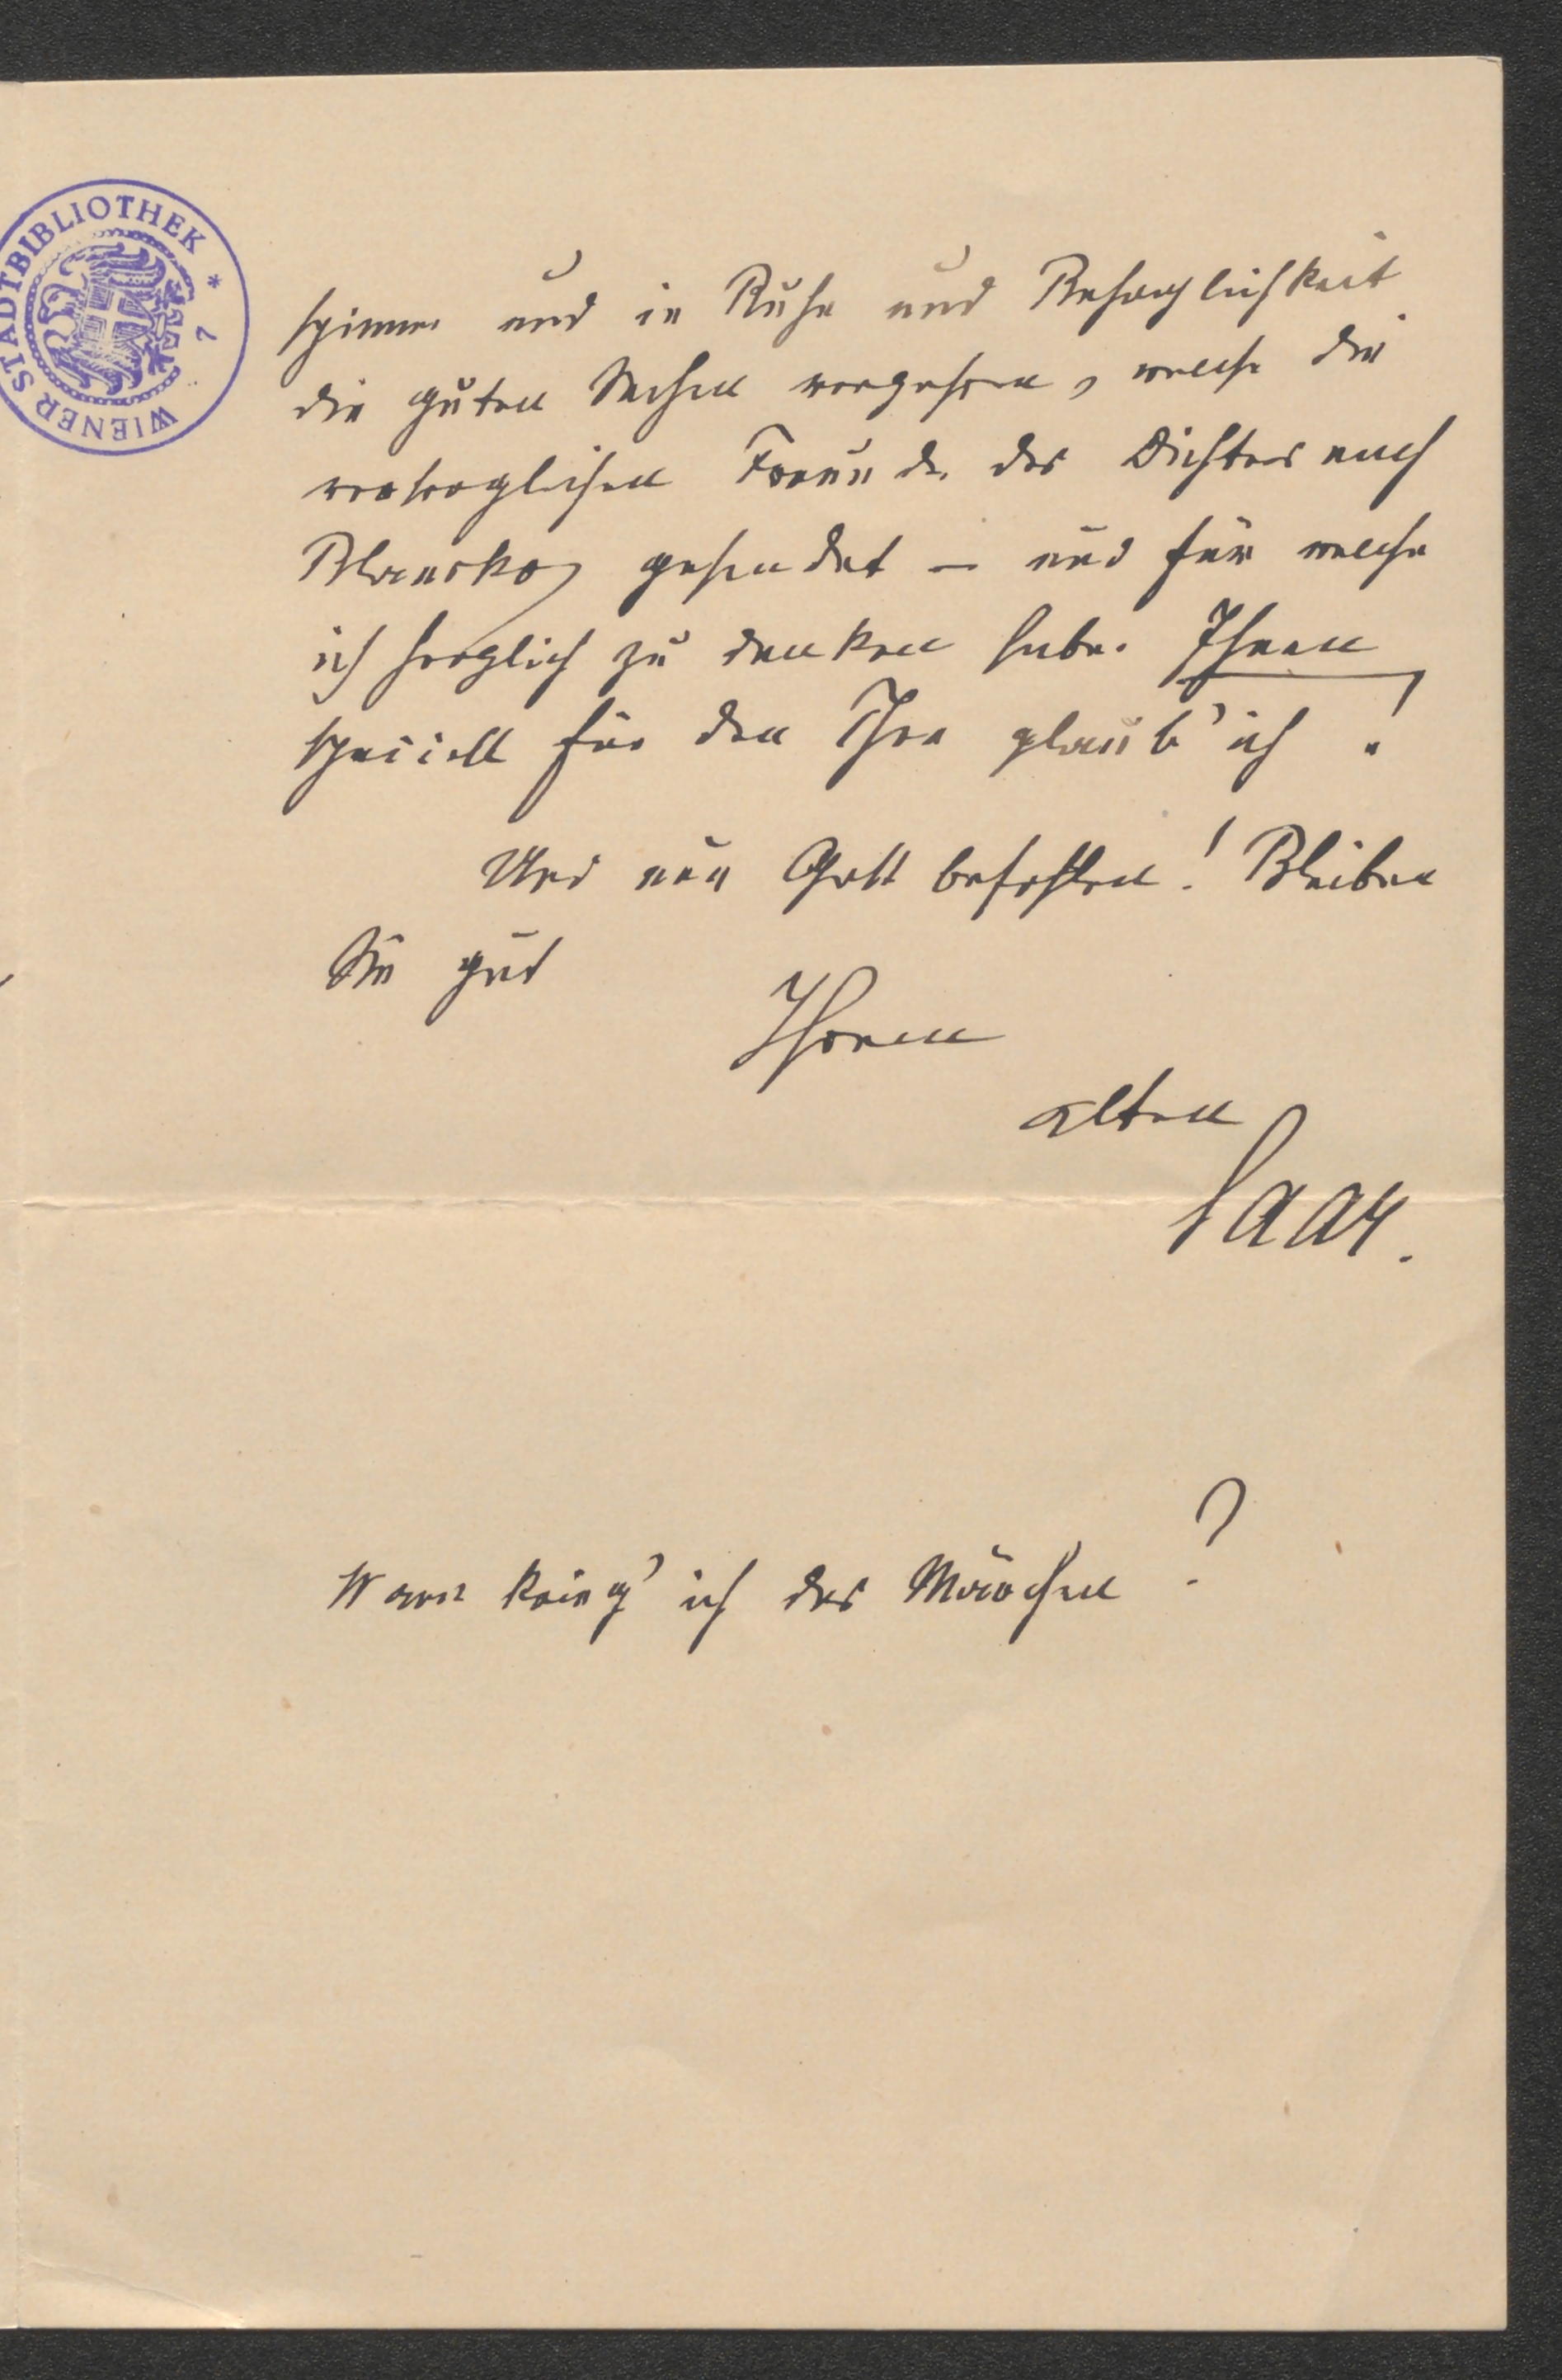 WIENER STADTBIBLIOTHEK * 7
spinnen und in Ruhe und Behaglichkeit
die guten Sachen verzehren, welche die
vortrefflichen Freunde des Dichters nach
Blansko gesendet – und für welche
ich herzlich zu danken habe. Ihnen
speciell für den Thee glaub' ich!
Und nun Gott befohlen! Bleiben
Sie gut
Ihrem
alten
Saar.
Wann krieg' ich das Märchen?